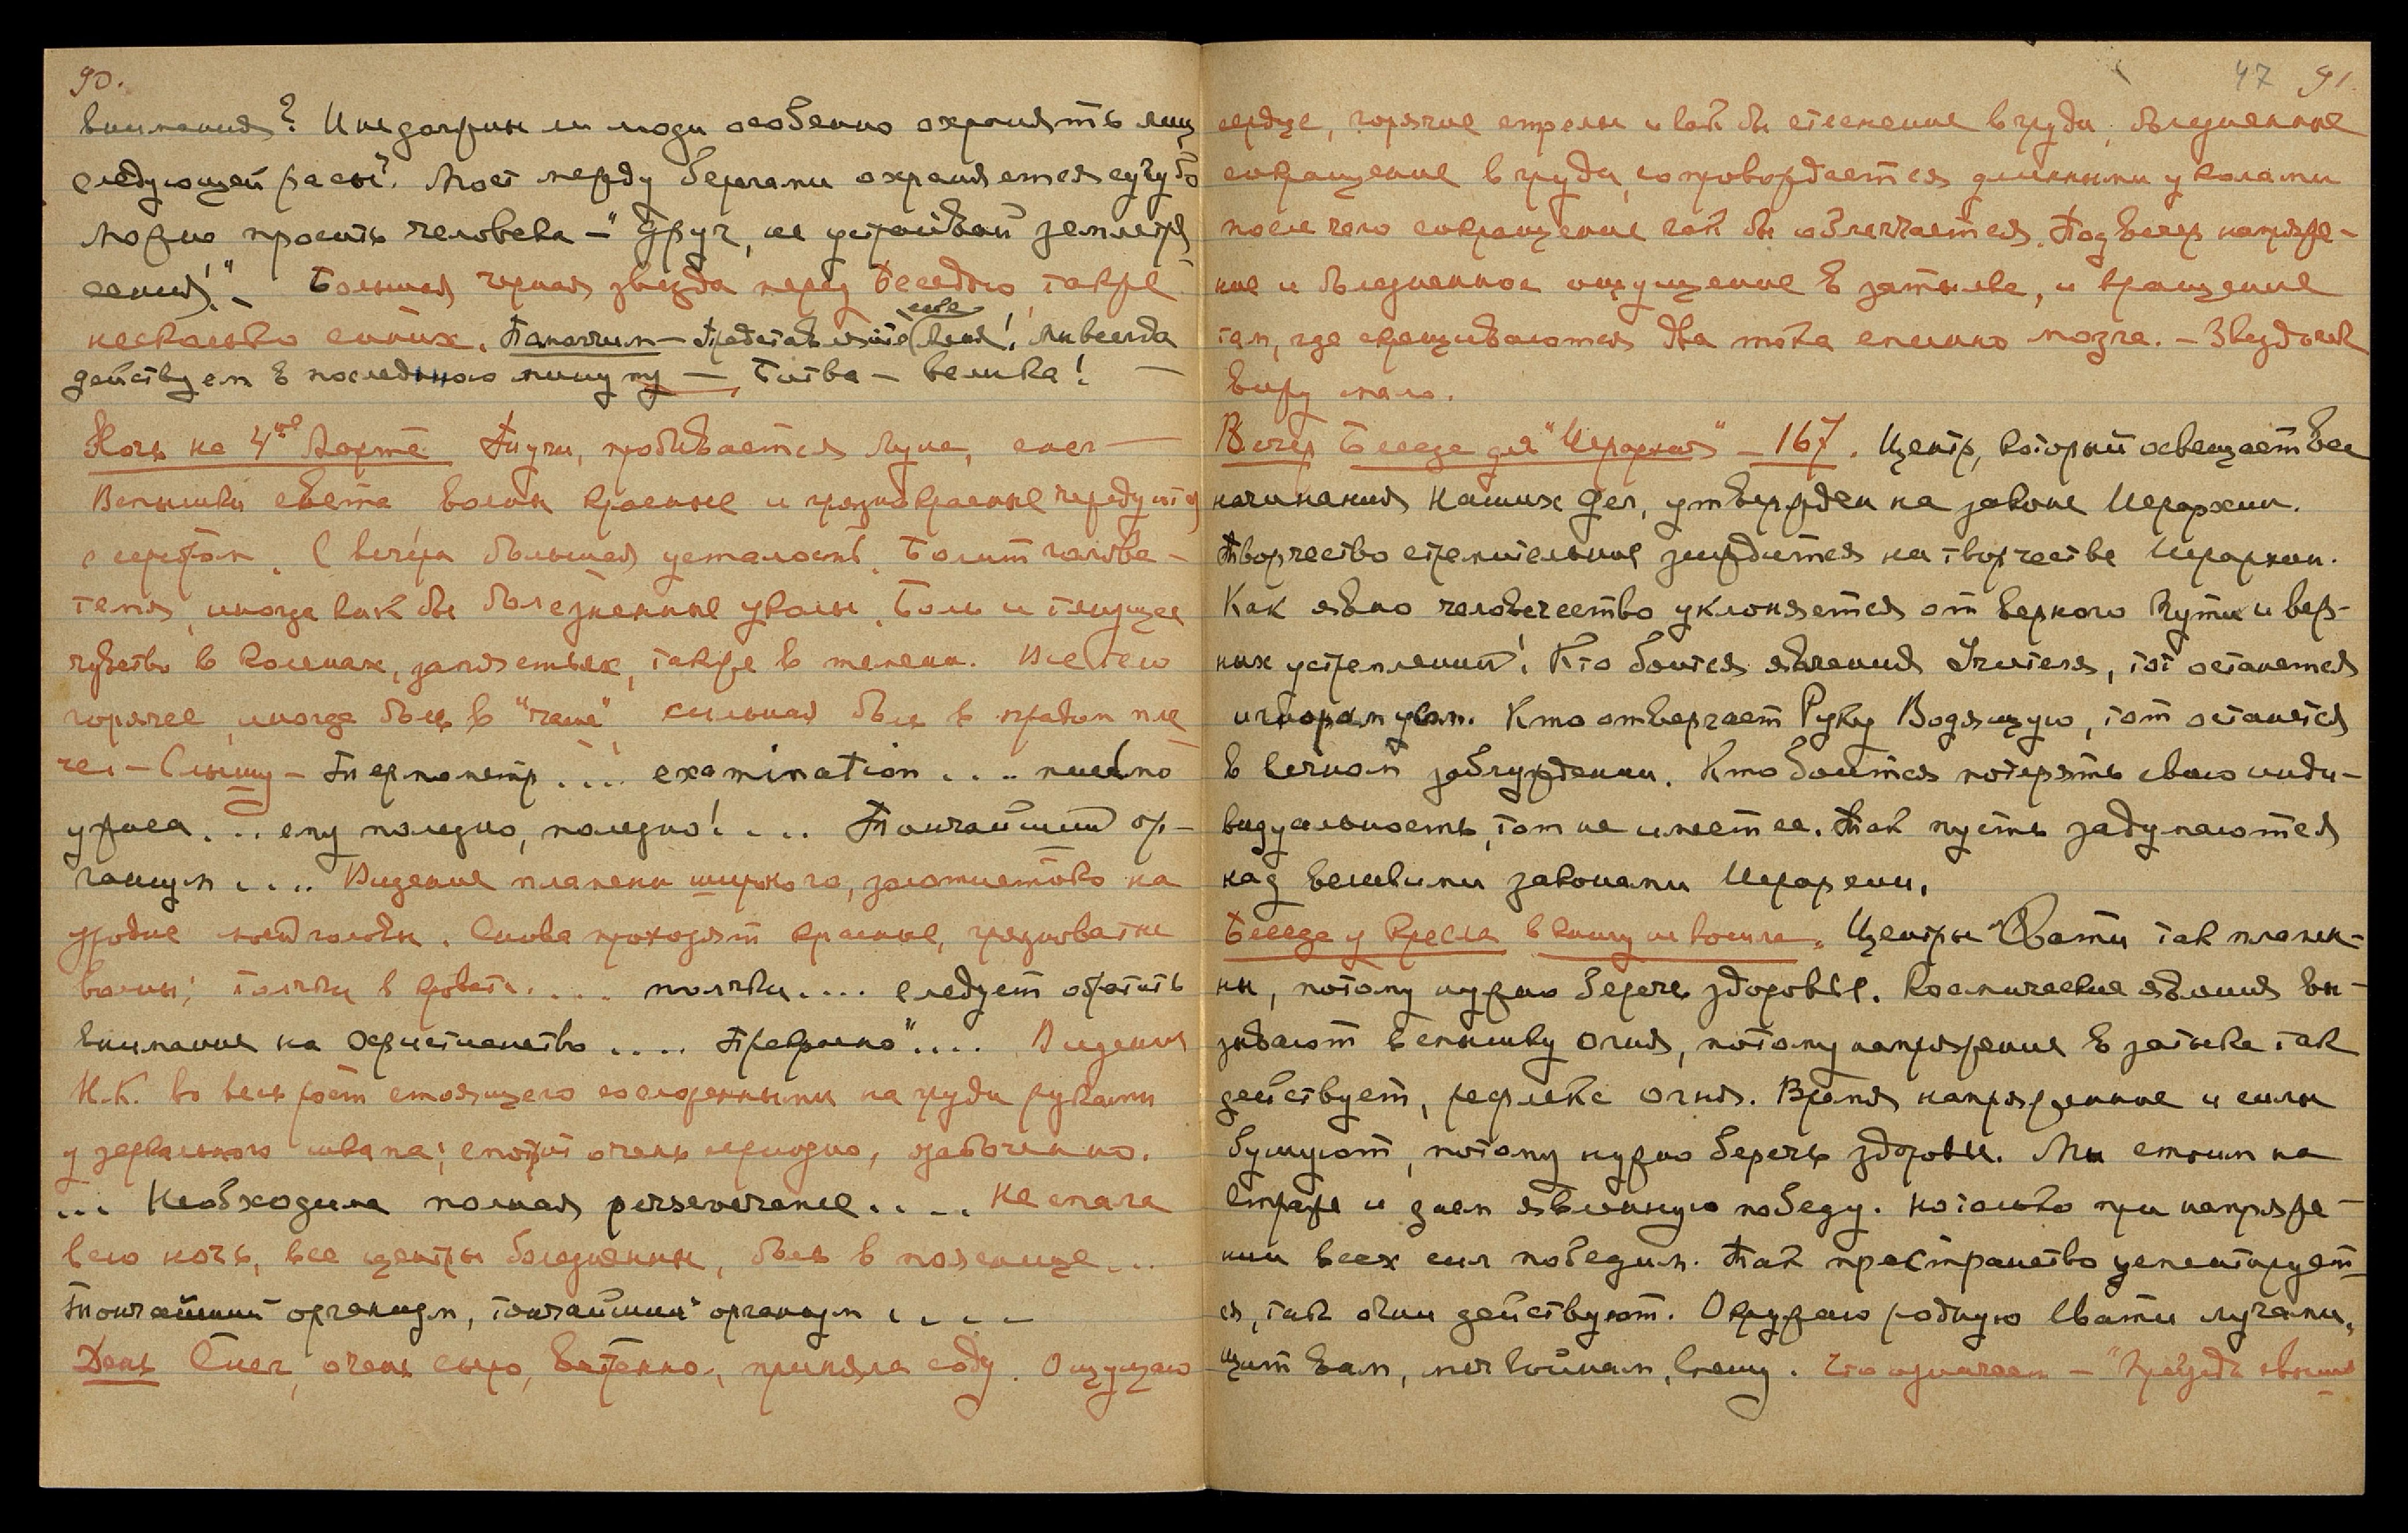 90.
внимания? И не должны ли люди особенно охранять лиц
следующей расы?. Мост между берегами охраняется сугубо
Можно просить человека — "Друг, не устраивай землетря
сения!" — Большая черная звезда перед Беседою, также
несколько синих. Представляйте себе Меня! Мы всегда
действуем в последнюю минуту — Битва — велика! —
Ночь на 4ое Марта Тучи, пробивается Луна, снег —
Вспышки света волны красные и грязнокрасные чередуются
с серебром. С вечера большая усталость. Болит голова —
темя, иногда как бы болезненные уколы. Боль и тянущее
чувство в коленах, запястьях, также в темени. Все тело
горячее, иногда боль в "чаше", сильная боль в правом пле
че — Слышу — Термометр .... examination .... письмо
ужаса ... ему полезно, полезно! .... Тончайший ор-
ганизм .... Видение пламени широкого, золотистого на
уровне моей головы. Снова проходят красные, грязноватые
волны; толчки в кровати .... толчки .... следует обратить
внимание на Христианство .... Прекрасно" .... Видение
Н.К. во весь рост стоящего со сложенными на груди руками
у зеркального шкапа; смотрит очень серьезно, озабоченно.
... Необходима полная perseverance .... Не спала
всю ночь, все центры болезненны, боль в пояснице ...
Тончайший организм, тончайший организм ....
День Снег, очень сыро, ветренно, приняла соду. Ощущаю
47 91.
сердце, горячие стрелы и как бы стеснение в груди, болезненное
сокращение в груди, сопровождается длинными уколами
после чего сокращение как бы облегчается. Под вечер напряже-
ние и болезненное ощущение в затылке, и вращение
там, где скрещиваются два тока спинно мозга. — Звездочек
вижу мало.
Вечер Беседа для "Иерархия" — 167. Центр, который освещает все
начинания Наших дел, утвержден на законе Иерархии.
Творчество стремительное зиждется на творчестве Иерархии.
Как явно человечество уклоняется от верного Пути и вер-
ных устремлений! Кто боится явления Учителя, тот останется
игнорамусом. Кто отвергает Руку Водящую, тот останется
в вечном заблуждении. Кто боится потерять свою инди-
видуальность, тот не имеет ее. Так пусть задумаются
над великими законами Иерархии.
Беседа у кресла в книгу не вошла. Центры Свати так пламен-
ны, потому нужно беречь здоровье. Космические явления вы-
зывают вспышку огня, потому напряжение в затылке так
действует, рефлекс огня. Время напряженное и силы
бушуют, потому нужно беречь здоровье. Мы стоим на
страже и даем явленную победу. Но только при напряже-
нии всех сил победим. Так пространство цементирует-
ся, так огни действуют. Окружаю родную Свати лучами,
щит вам, меч воинам, вношу. Что означает — "Правда свыше